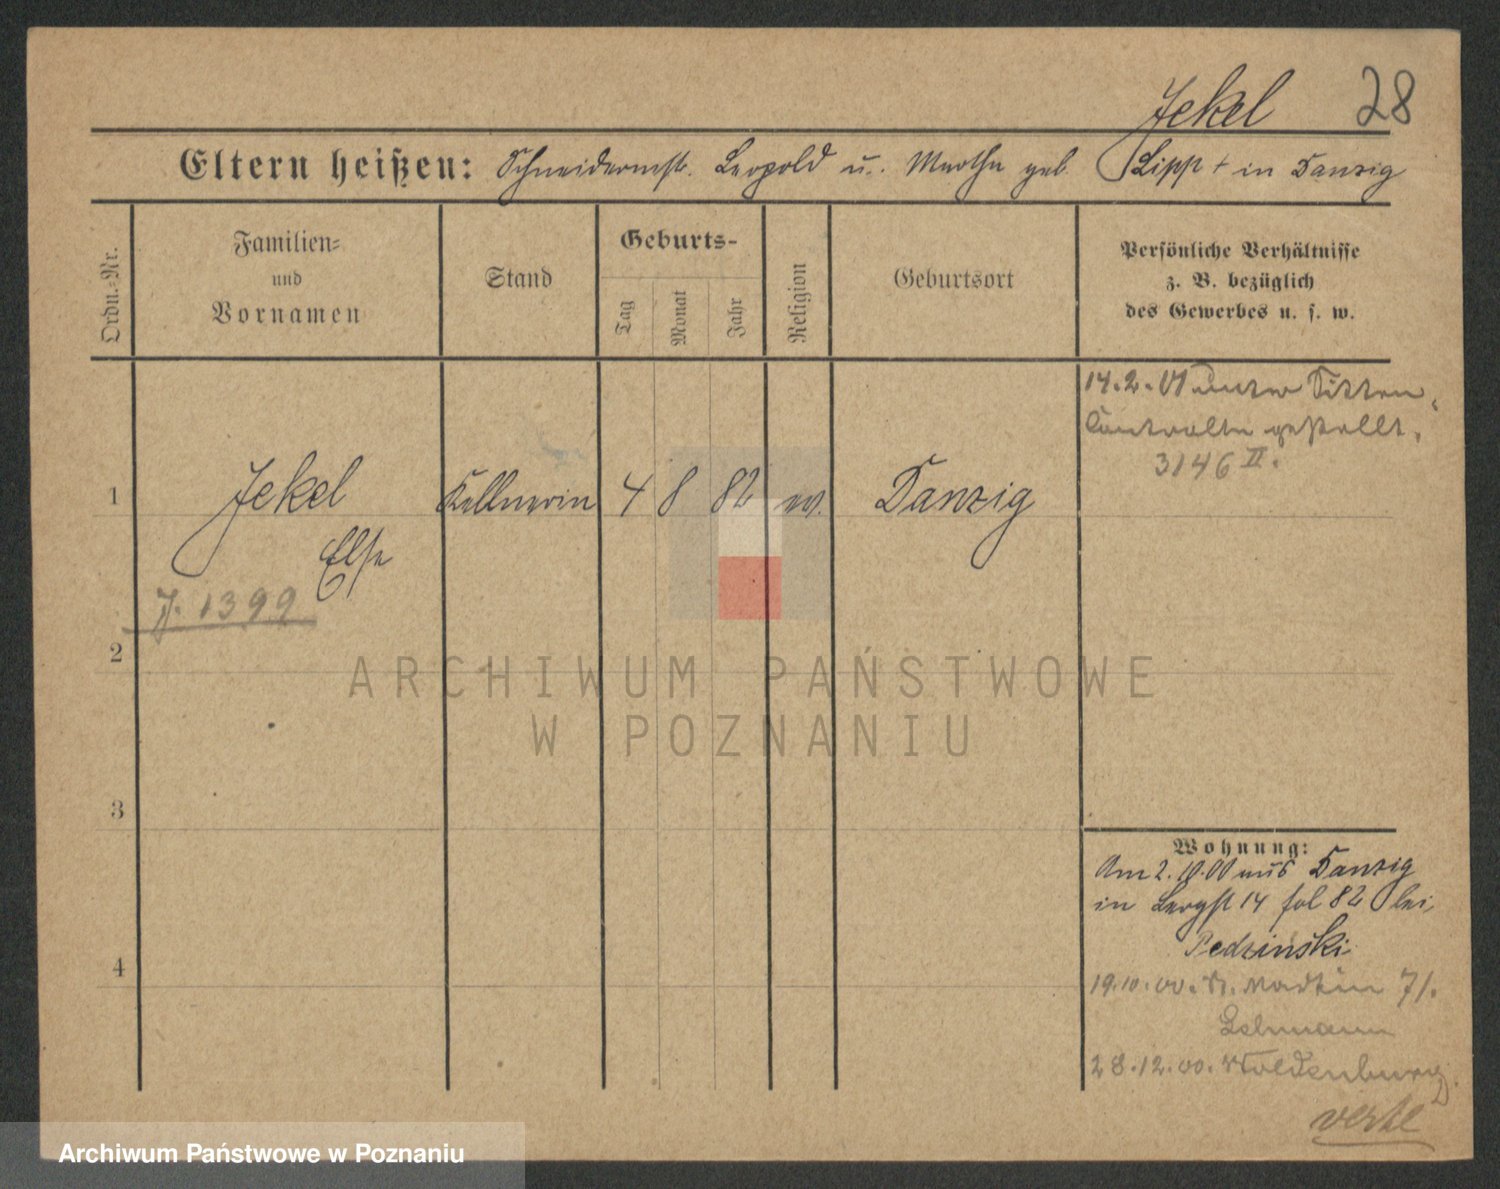 Jekel 28
Eltern heißen: Schneidermstr. Leopold u. Martha geb. Lipp + in Danzig
Ordn.=Nr.
Familien=
und
Vornamen
Stand
Geburts-
Tag
Monat
Jahr
Religion
Geburtsort
Persönliche Verhältnisse
z. B. bezüglich
des Gewerbes u. s. w.
14.2.01 unter Sitten-
Controlle gestellt.
3146 II.
1 Jekel Kellnerin 4 8 82 ev. Danzig
Else
J. 1399
2
3
4
Wohnung:
Am 2.10.00 aus Danzig
in Bergst 14 fol 82 bei
Pedzinski
19.10.00. St. Martin 71.
Lehmann
28.12.00. Woldenburg
verte
ARCHIWUM PAŃSTWOWE
W POZNANIU
Archiwum Państwowe w Poznaniu